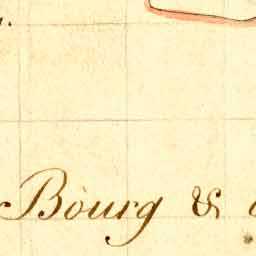 Bourg &